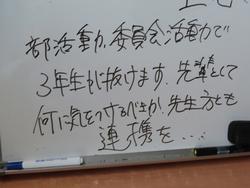 部活動、委員会活動で
3年生が抜けます。先輩として
何に気をつけるべきか、先生方とも
連携を....